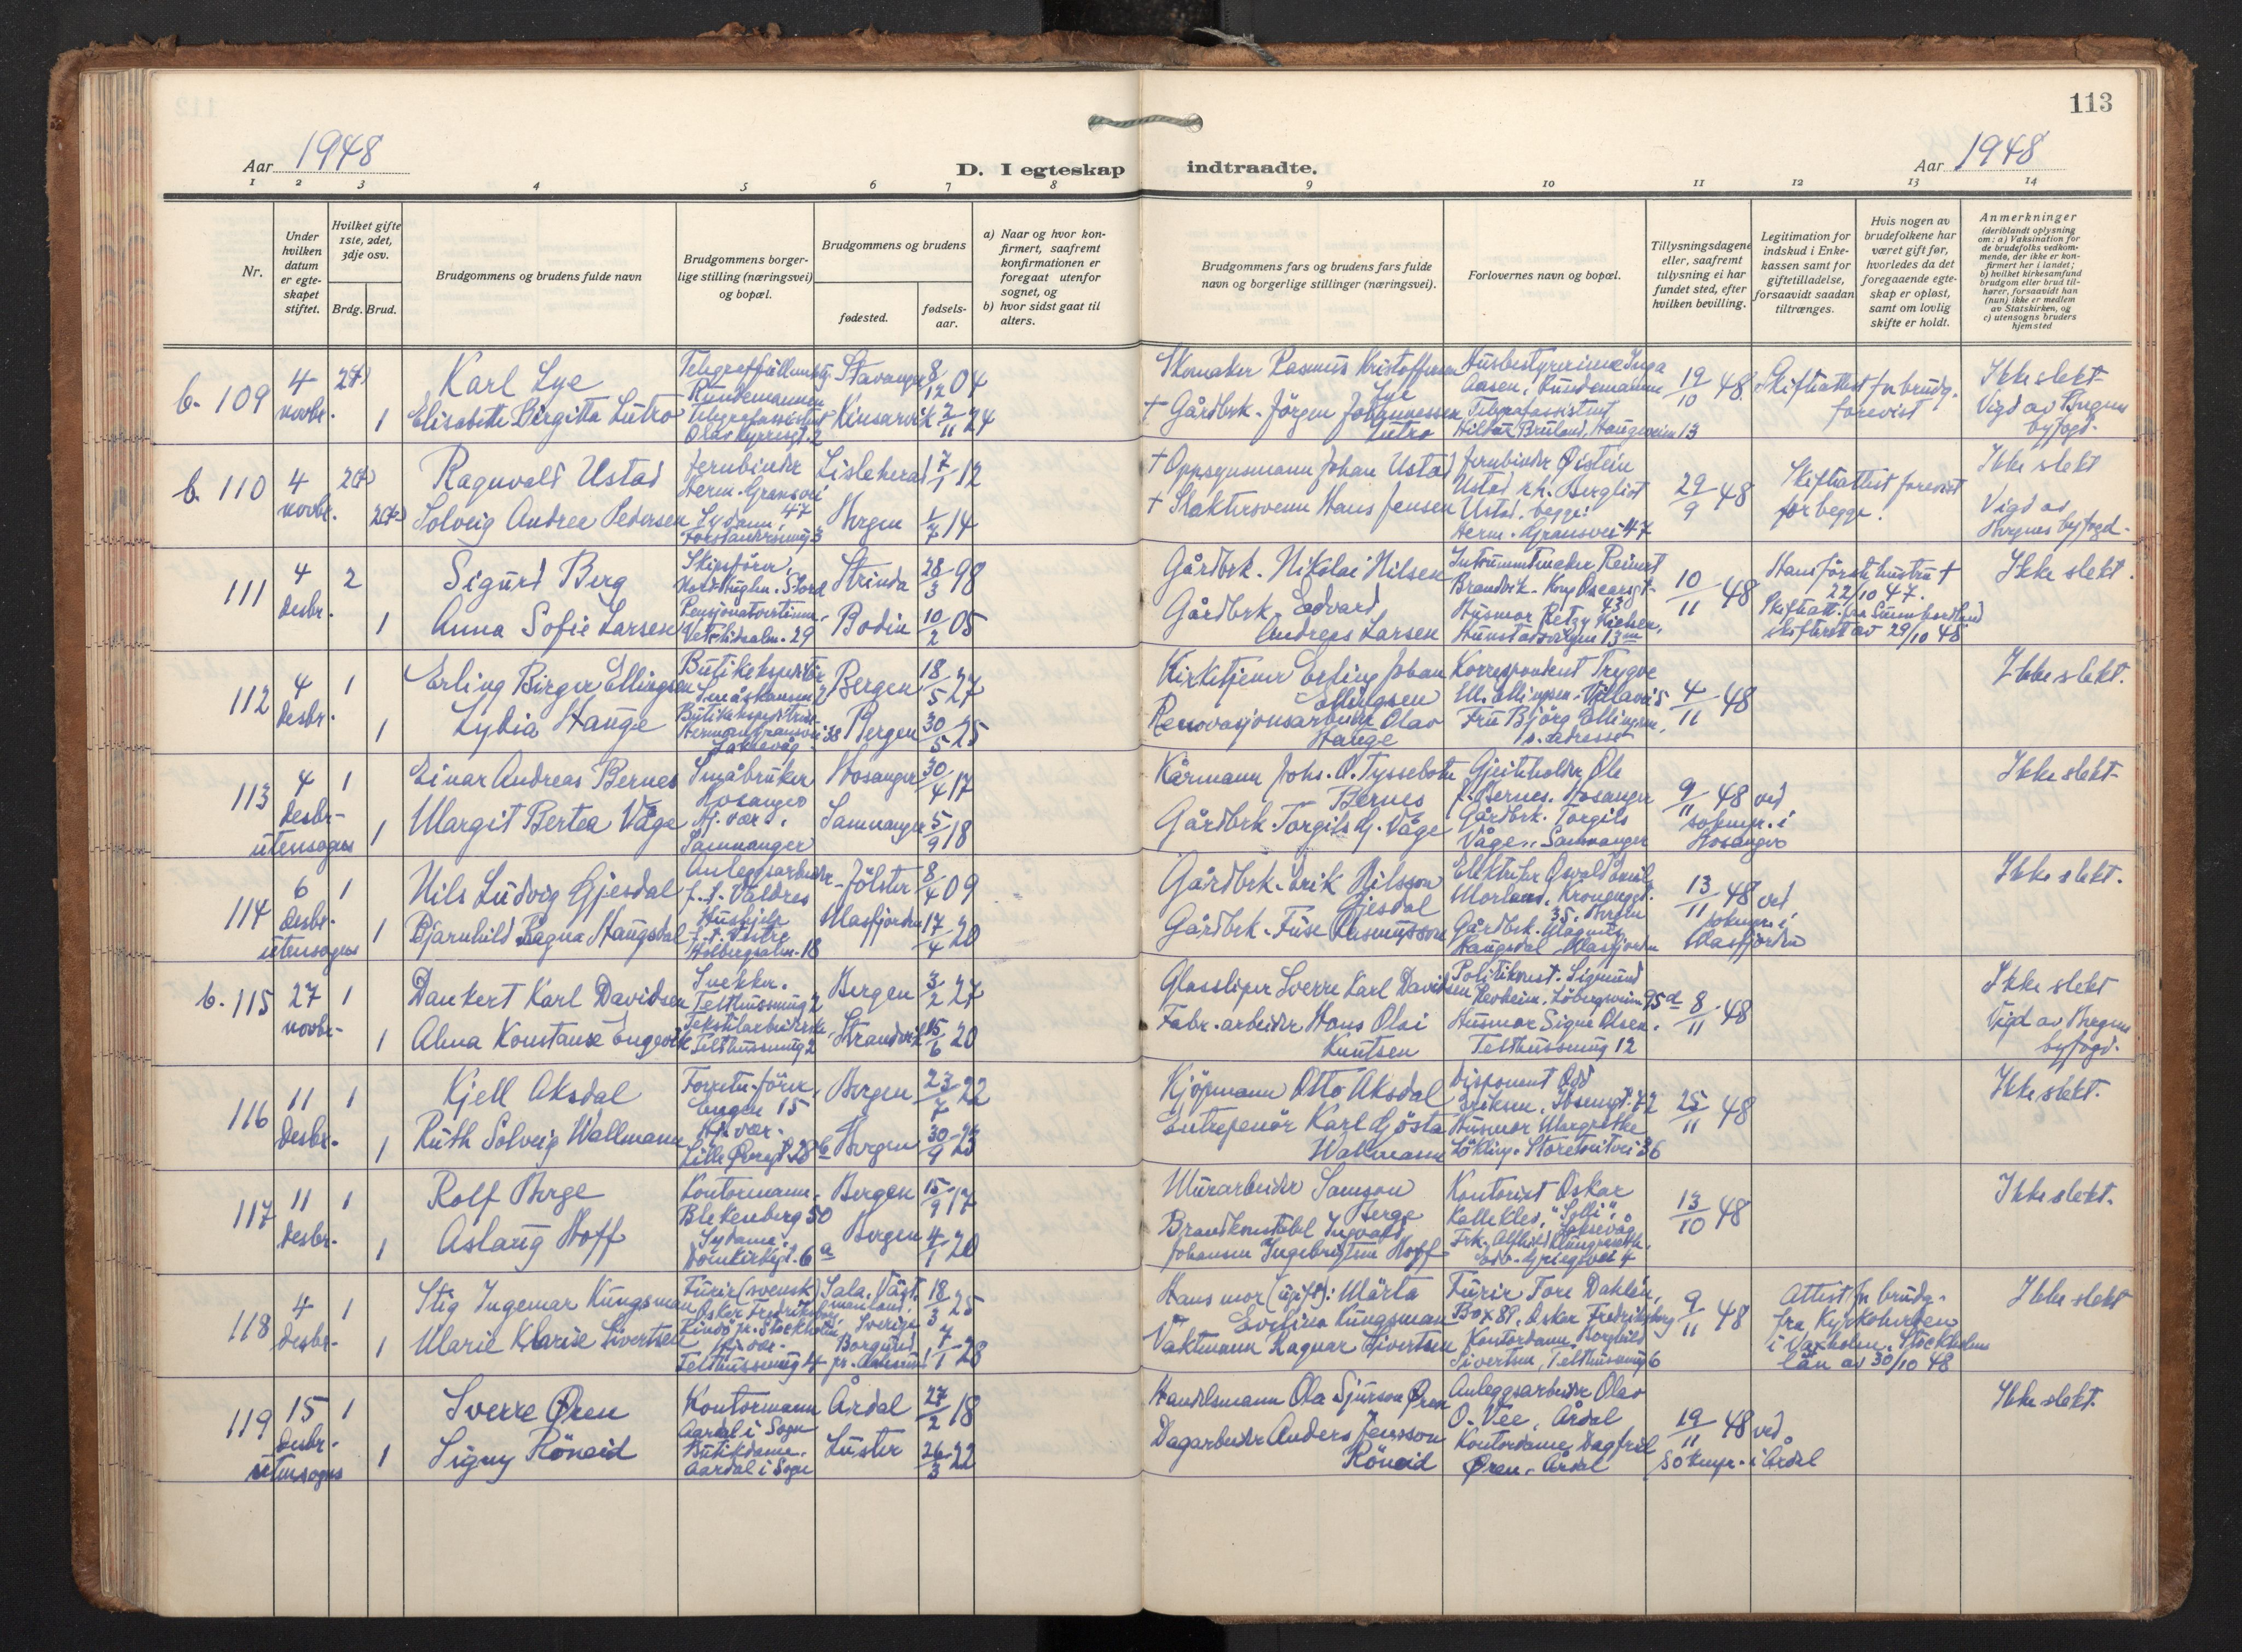 113
Aar 1948
D. I egteskap indtraadte.
Aar 1948
1 2 3 4 5 6 7 8 9 10 11 12 13 14
Nr.
Under hvilken datum er egte-skapet stiftet.
Hvilket gifte 1ste, 2det, 3dje osv.
Brdg. Brud.
Brudgommens og brudens fulde navn
Brudgommens borger-lige stilling (næringsvei) og bopæl.
Brudgommens og brudens
fødested.
fødsels-aar.
a) Naar og hvor kon-firmert, saafremt konfirmationen er foregaat utenfor sognet, og
b) hvor sidst gaat til alters.
Brudgommens fars og brudens fars fulde navn og borgerlige stillinger (næringsvei).
Forlovernes navn og bopæl.
Tillysningsdagene eller, saafremt tillysning ei har fundet sted, efter hvilken bevilling.
Legitimation for indskud i Enke-kassen samt for giftetilladelse, forsaavidt saadan tiltrænges.
Hvis nogen av brudefolkene har været gift før, hvorledes da det foregaaende egte-skap er opløst, samt om lovlig skifte er holdt.
Anmerkninger (deriblandt oplysning om: a) Vaksination for de brudefolks vedkom-mende, der ikke er kon-firmert her i landet; b) hvilket kirkesamfund brudgom eller brud til-hører, forsaavidt han (hun) ikke er medlem av Statskirken, og c) utensogns bruders hjemsted
b. 109 4 novbr.
Karl Lye
Rundemannen
Stavanger 8/12 04
Skomaker Rasmus Kristoffersen Lye
Husbestyrerinne Inga Aasen, Rundemannen
19/10 48
Skifteattest for brudg. forevist
Ikke slekt
Vigd av Bergens byfogd.
1 Elisabeth Birgitta Lutro
Telegrafassistent
Kinsarvik 2/11 24
† Gårdbrk. Jörgen Johannessen Lutro
Telegrafassistent
Haugeveien 13
b. 110 4 novbr.
Ragnvald Ustad
Jernbinder
Herm. Gransvei 47
7/1 12
† Oppsynsmann Johan Ustad
Jernbinder Øistein Ustad
29/9 48
Skifteattest forevist for begge.
Ikke slekt
Vigd av Bergens byfogd.
Solveig Andrea Pedersen
Sydame,
Bergen 1/7 14
† Slaktersvenn Hans Jensen
Bergliot Ustad, begge: Herm. Gransvei 47
111 4 desbr. 2
Sigurd Berg
Skipsförer,
Strinda 28/3 98
Gårdbrk. Nikolai Nilsen
Instrumentmaker Reinert Brandvik. Kong Oscarsgt. 43
10/11 48
Hans förste hustru † 22/10 47.
Ikke slekt.
1 Anna Sofie Larsen
Vetrlidsalm. 29
Bodin 10/2 05
Gårdbrk. Edvard Andreas Larsen
Husmor
29/10 48
112 4 desbr. 1
Erling Birger Ellingsen
Butikekspeditör
Bergen 18/5 27
Kirketjener Erling Johan Ellingsen
Korrespondent Trygve
4/11 48
Ikke slekt.
1 Lydia Hauge
Butikekspeditrise
Laksevåg
Bergen 30/5 25
Renovasjonsarbeider Olav Hauge
Fru Björg Ellingsen, s. adresse
113 4 desbr. 1
utensogns
Einar Andreas Bernes
Småbruker Hosanger
Hosanger 30/4 17
Kårmann Johs. O. Tyssebotn Bernes
Ole J. Bernes. Hosanger
9/11 48 ved soknepr. i Hosanger
Ikke slekt
1 Margit Bertea Våge
Hj. vær. Samnanger
Samnanger 5/9 18
Gårdbrk. Torgils G. Våge
Gårdbrk. Torgils Våge, Samnanger
114 6 desbr. 1
utensogns
Nils Ludvig Gjesdal
Anleggsarbeider f. t. Valdres
Jölster 8/4 09
Gårdbrk. Erik Nilsson Gjesdal
13/11 48 ved soknepr. i Masfjorden
Ikke slekt.
1 Bjarnhild Ragna Haugsdal
Hushjelp
Holbergsalm. 18
Masfjorden 17/4 20
Gårdbrk. Fuse Rasmusson
Gårdbrk. Magnus Haugsdal, Masfjorden
b. 115 27 novbr. 1
Dankert Karl Davidsen
Snekker. Telthussmug 2
Bergen 3/2 27
Glassliper Sverre Karl Davidsen
Sigmund
8/11 48
Ikke slekt
Vigd av Bergens byfogd.
1 Alma Konstanse Engevik
Tekstilarbeiderske, Telthussmug 2
Strandvik 15/6 20
Fabr. arbeider Hans Olai Knutsen
Husmor Signe Olsen. Telthussmug 12
116 11 desbr. 1
Kjell Aksdal
Forretn. förer, Engen 15
Bergen 23/7 22
Kjöpmann Otto Aksdal
Disponent Odd Eriksen, Ibsensgt. 72
25/11 48
Ikke slekt.
1 Ruth Solveig Wallmann
Hj. vær. Lille Øvregt. 28 b
Bergen 30/9 23
Entreprenör Karl Gösta Wallmann
Husmor Margrethe Lökling. Storetveitvei 36
117 11 desbr. 1
Rolf Berge
Kontormann, Blekenberg 50
Bergen 15/9 17
Murarbeider Samson Berge
Kontorist Oskar
Laksevåg
13/10 48
Ikke slekt.
1 Aslaug Hoff
Sydame. Domkirkegt. 6 a
Bergen 4/1 20
Brandkonstabel Ingvald Johansen Ingebrigtsen Hoff
Edv. Griegsvei 4
118 4 desbr. 1
Stig Ingemar Kungsman
Furir (svensk) Oskar Fredriksborg, Rindö pr. Stockholm
Sala, Västmanland, Sverige 18/3 25
Hans mor (ugift): Märta Evelina Kungsman
Furir Tore Daklén, Box 89, Oskar Fredriksborg
9/11 48
Attest for brudg. fra Kyrkoherden i Vaxholm, Stockholms län av 30/10 48
Ikke slekt
1 Marie Klarise Sivertsen
Hj. vær. Telthussmug 4
Borgund pr. Aalesund 7/1 28
Vaktmann Ragnar Sivertsen
Kontordame Borghild Sivertsen, Telthussmug 6
119 15 desbr. 1
utensogns
Sverre Øren
Kontormann Aardal i Sogn
Årdal 27/2 18
Handelsmann Ola Sjurson Øren
Anleggsarbeider Olav O. Vee, Årdal
19/11 48 ved soknepr. i Årdal
Ikke slekt.
1 Signy Röneid
Butikdame. Aardal i Sogn
Luster 26/3 22
Dagarbeider Anders Jensson Röneid
Kontordame Dagfrid Øren, Årdal